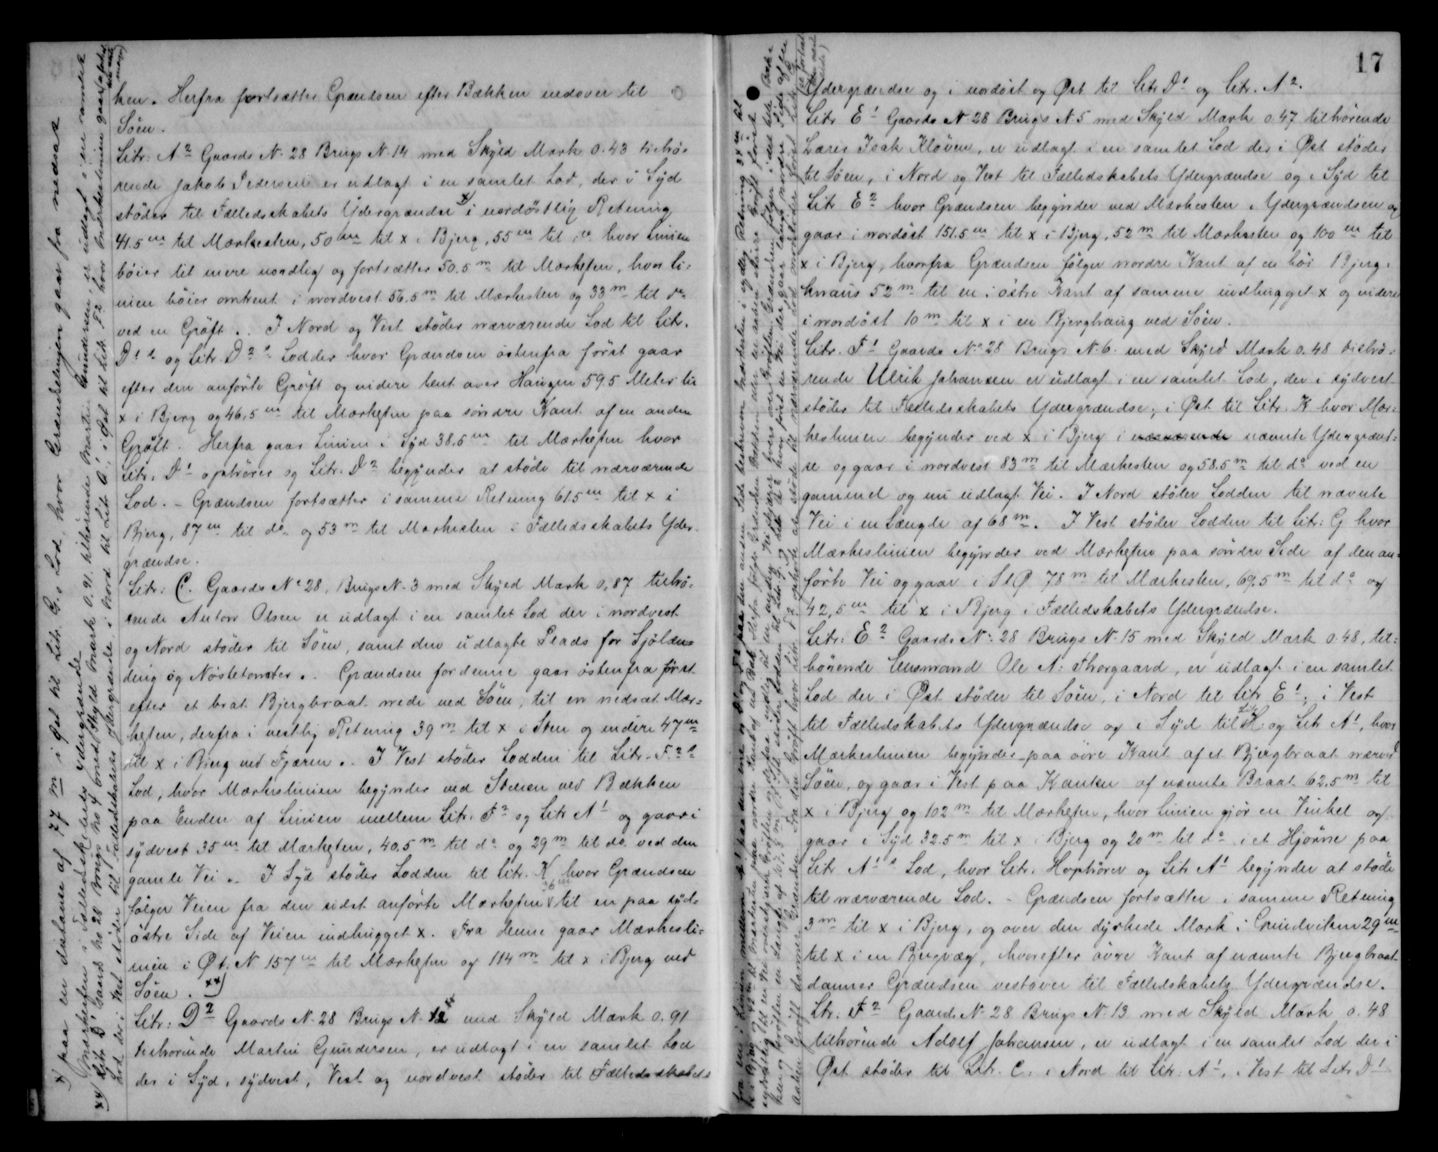 ken. Herfra fortsætter Grændsen efter Bækken nedover til
Søen.
Litr: A² Gaards No 28 Brugs No 14 med Skyld Mark 0.43 tilhø-
rende Jakob Pedersen er udlagt i en samlet Lod, der i Syd
støder til Fælledsskabets Ydergrændse x) i nordøstlig Retning
41.5 m til Mærkesten, 50 m til x i Bjerg, 55 m til do hvor Linien
bøier til mere nordlig og fortsætter 50.5 m til Mærkesten, hvor Li-
nien bøier omtrent i nordvest 56.5 m til Mærkesten og 33 m til do
ved en Grøft. I Nord og Vest støder nærværende Lod til Litr.
D¹s og Litr. D²s Lodder hvor Grændsen østenfra først gaar
efter den anførte Grøft og videre bent over Haugen 59.5 Meter til
x i Bjerg og 46.5 m til Mærkesten paa søndre Kant af en anden
Grøft. Herfra gaar Linien i Syd 38.5 m til Mærkesten hvor
Litr. D¹ ophører og Litr. D² begynder at støde til nærværende
Lod. – Grændsen fortsætter i samme Retning 61.5 m til x i
Bjerg, 87 m til do og 53 m til Mærkesten i Fælledsskabets Yder-
grændse.
Litr: C. Gaards No 28, Brugs No 3 med Skyld Mark 0,87 tilhø-
rende Anton Olsen er udlagt i en samlet Lod der i nordvest
og Nord støder til Søen, samt den udlagte Plads for Sjølæn-
ding og Nøstetomter. Grændsen for denne gaar østenfra først
efter et brat Bjergbraat nede ved Søen, til en nedsat Mær-
kesten, derfra i vestlig Retning 39 m til x i Sten og videre 47 m
til x i Bjerg ved Fjæren. I Vest støder Lodden til Litr. F²s
Lod, hvor Mærkeslinien begynder ved Steinen ved Bækken
paa Enden af Linien mellem Litr. F² og Litr A¹ og gaar i
sydvest 35 m til Mærkesten, 40,5 m til do og 29 m til do ved den
gamle Vei. I Syd støder Lodden til Litr. K hvor Grændsen
følger Veien fra den sidst anførte Mærkesten 36 m til en paa syd-
østre Side af Veien indhugget x. Fra denne gaar Mærkesli-
nien i Øst. N 157 m til Mærkesten og 114 m til x i Bjerg ved
Søen. xx)
Litr: D² Gaards No 28 Brugs No 12 med Skyld Mark 0.91
tilhørende Martin Gundersen, er udlagt i en samlet Lod
der i Syd, sydvest, Vest og nordvest støder til Fælledsskabets
x) paa en distance af 77 m i Øst til Litr. G.s Lod, hvor Grændselinjen gaar fra nedsat
Mærkesten i Fælledsskabets Ydergrændse
17
Ydergrændse og i nordøst og Øst til Litr D¹ og Litr. A².
Litr E¹ Gaards No 28 Brugs No 5 med Skyld Mark 0.47 tilhørende
Lærer Isak Kløven, er udlagt i en samlet Lod der i Øst støder
til Søen, i Nord og Vest til Fælledskabets Ydergrændse og i Syd til
Litr E² hvor Grændsen begynder ved Mærkesten i Ydergrændsen og
gaar i nordøst 151.5 m til x i Bjerg, 52 m til Mærkesten og 100 m til
x i Bjerg, hvorfra Grændsen følger nordre Kant af en høi Bjerg-
knaus 52 m til en i østre Kant af samme indhugget x og videre
i nordøst 10 m til x i en Bjerghaug ved Søen.
Litr. F¹ Gaards No 28 Brugs No 6 med Skyld Mark 0.48 tilhø-
rende Ulrik Johansen er udlagt i en samlet Lod, der i sydvest
støder til Fælledsskabets Ydergrændse, i Øst til Litr. K hvor Mær-
keslinien begynder ved x i Bjerg i nævnte Ydergrænd-
se og gaar i nordvest 83 m til Mærkesten og 58.5 m til do ved en
gammel og nu udlagt Vei. I Nord støder Lodden til nævnte
Vei i en Længde af 68 m. I Vest støder Lodden til Litr: G hvor
Mærkeslinien begynder ved Mærkesten paa søndre Side af den an-
førte Vei og gaar i S t Ø 78 m til Mærkesten, 69,5 m til do og
42,5 m til x i Bjerg i Fælledskabets Ydergrændse.
Litr: E² Gaards No 28 Brugs No 15 med Skyld Mark 0.48, til-
hørende Ole N. Thorgaard, er udlagt i en samlet
Lod der i Øst støder til Søen, i Nord til Litr E¹, i Vest
til Fælledskabets Ydergrændse og i Syd til Litr H og Litr A¹, hvor
Mærkeslinien begynder paa øvre Kant af et Bjergbraat nærved
Søen, og gaar i Vest paa Kanten af nævnte Braat 62.5 m til
x i Bjerg og 102 m til Mærkesten, hvor Linien gjør en Vinkel og
gaar i Syd 32.5 m til x i Bjerg og 20 m til do i et Hjørne paa
Litr A¹s Lod, hvor Litr. H ophører og Litr A¹ begynder at støde
til nærværende Lod. – Grændsen fortsætter i samme Retning
3 m til x i Bjerg, og over den dyrkede Mark i 29 m
til x i en Bergvæg, hvorefter øvre Kant af nævnte Bjergbraat
danner Grændsen vestover til Fælledskabets Ydergrændse.
Litr. F² Gaards No 28 Brugs No 13 med Skyld Mark 0.48
tilhørende Adolf Johansen, er udlagt i en samlet Lod der i
Øst støder til Litr. C. i Nord til Litr: A¹, i Vest til Litr D¹